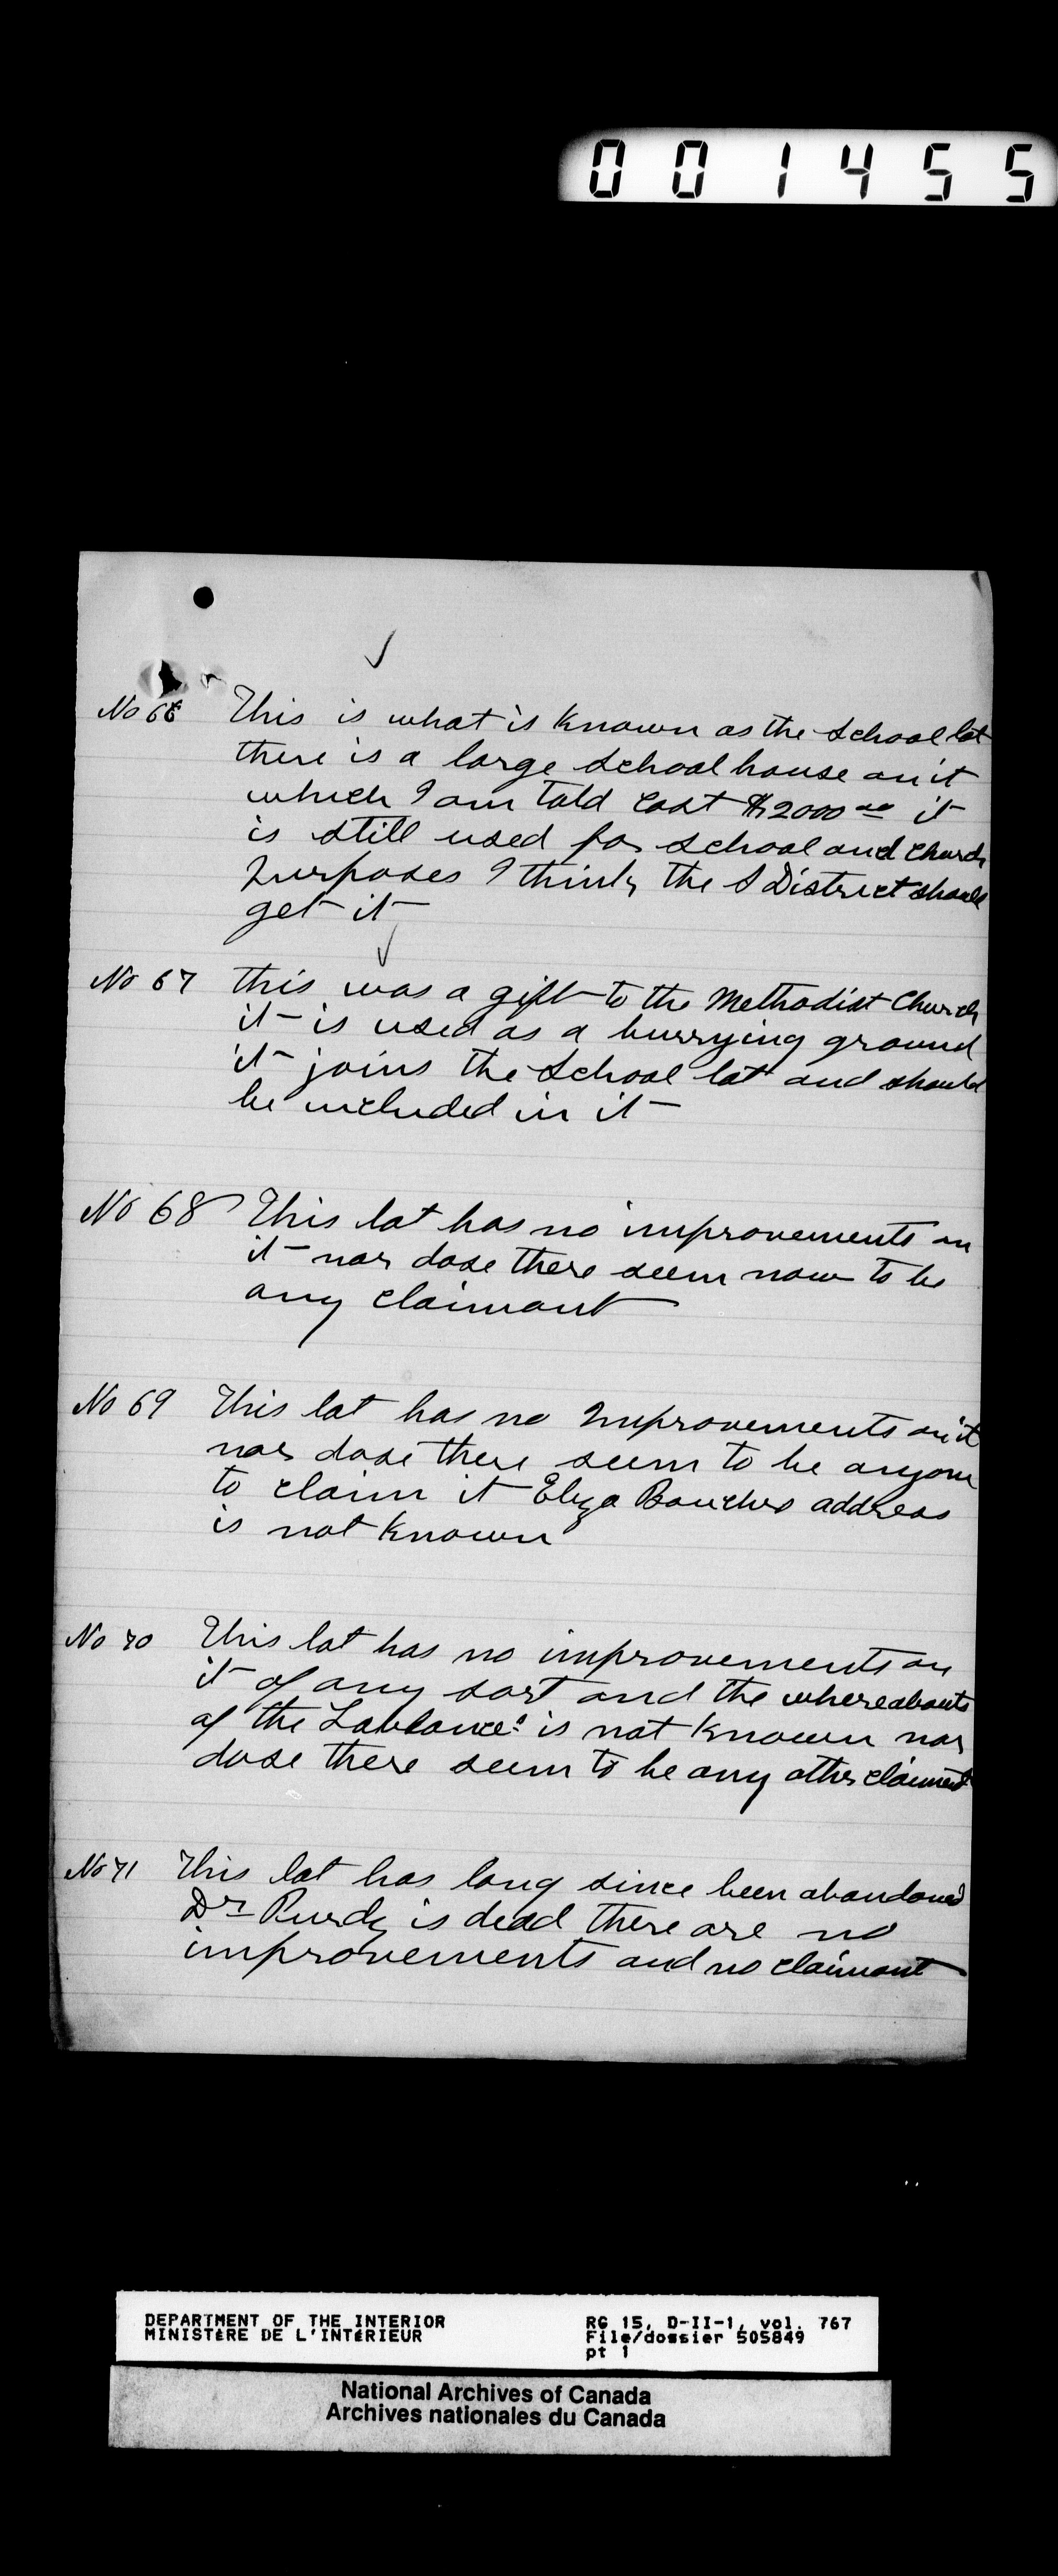 001455
No 66 This is what is known as the School lot
there is a large school house on it
which I am told cost $2000 00 it
is still used for school and church
purposes I think the S District should
get it
No 67 this was a gift to the Methodist Church
it is used as a burrying ground
it joins the School lot and should
be included in it
No 68 This lot has no improvements on
it nor dose there seem now to be
any claimant
No 69 This lot has no Improvements on it
nor dose there seem to be anyone
to claim it Eliza Bouchers address
is not known
No 70 This lot has no improvements on
it of any sort and the whereabouts
of the is not known nor
dose there seem to be any other claiment
No 71 This lot has long since been abandoned
Dr Purdy is dead there are no
improvements and no claimant
DEPARTMENT OF THE INTERIOR
MINISTÈRE DE L'INTÉRIEUR
RG 15, D-II-1, vol. 767
File/dossier 505849
pt 1
National Archives of Canada
Archives nationales du Canada